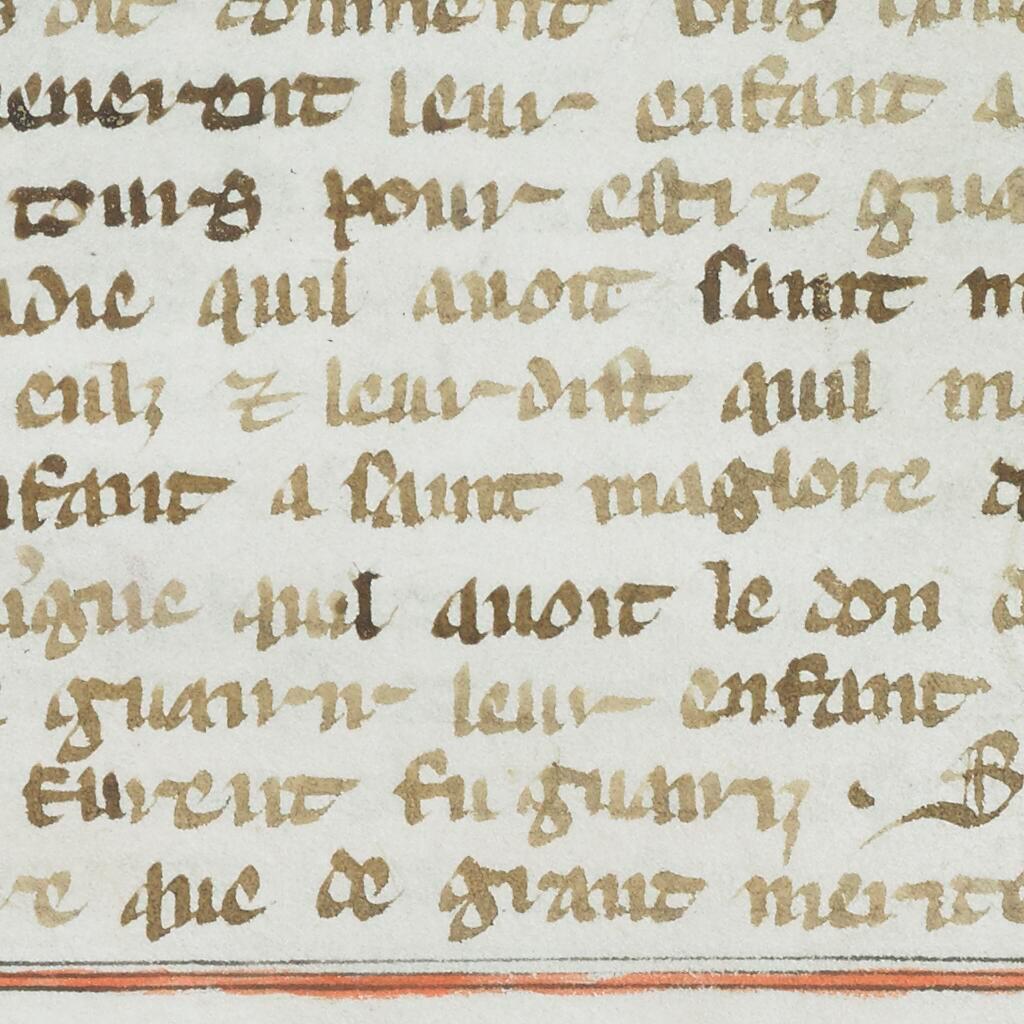 dit comment
menerent leur enfant a
tours pour estre gua
adie quil auoit saint m
eulz ⁊ leur dist quil m
nfant a saint magloire d
quil auoit le don d
guairir leur enfant
furent fu guariz . S
re que de grant merite